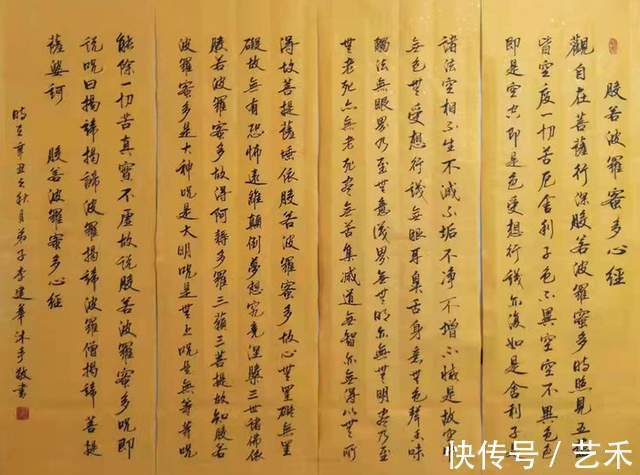 般若波羅蜜多心經
觀自在菩薩行深般若波羅蜜多時照見五蘊
皆空度一切苦厄舍利子色不異空空不異色色
即是空空即是色受想行識亦復如是舍利子是
諸法空相不生不滅不垢不淨不增不減是故空中
無色無受想行識無眼耳鼻舌身意無色聲香味
觸法無眼界乃至無意識界無無明亦無無明盡乃至
無老死亦無老死盡無苦集滅道無智亦無得以無所
得故菩提薩埵依般若波羅蜜多故心無罣礙無罣
礙故無有恐怖遠離顛倒夢想究竟涅槃三世諸佛依
般若波羅蜜多故得阿耨多羅三藐三菩提故知般若
波羅蜜多是大神咒是大明咒是無上咒是無等等咒
能除一切苦真實不虛故說般若波羅蜜多咒即
說咒曰揭諦揭諦波羅揭諦波羅僧揭諦菩提
薩婆訶 般若波羅蜜多心經
時在辛丑之秋月弟子李建華沐手敬書
快传号/艺禾